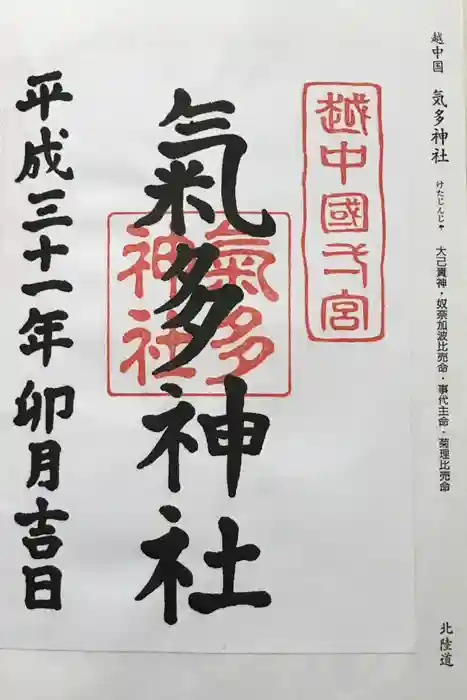 越中国 気多神社 けたじんじゃ 大己貴神・奴奈加波比売命・事代主命・菊理比売命 北陸道
越中國宮
氣多神社
氣多
神社
平成三十一年卯月吉日